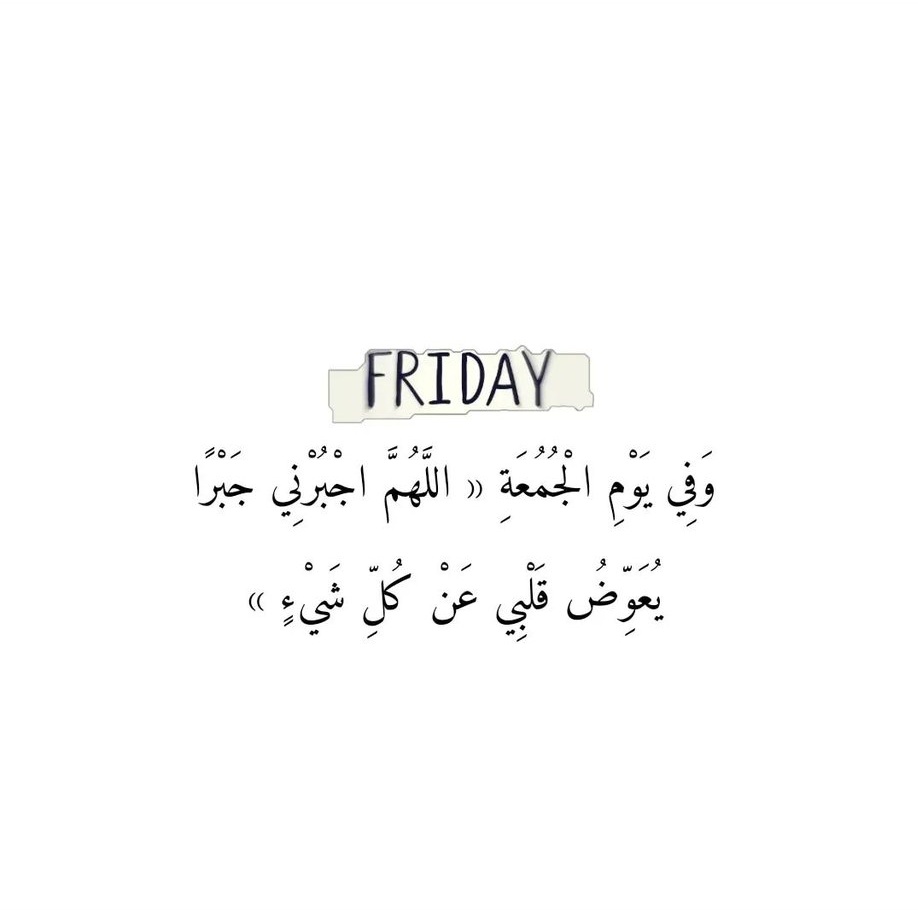 FRIDAY
وَفِي يَوْمِ الْجُمُعَةِ (( اللَّهُمَّ اجْبُرْنِي جَبْرًا
يُعَوِّضُ قَلْبِي عَنْ كُلِّ شَيْءٍ ))